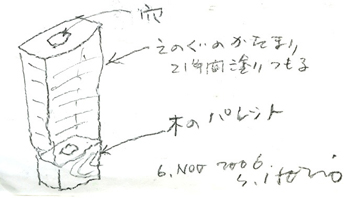 穴
えのぐのかたまり
21年間塗りつもる
木のパレット
6. NOV 2006.